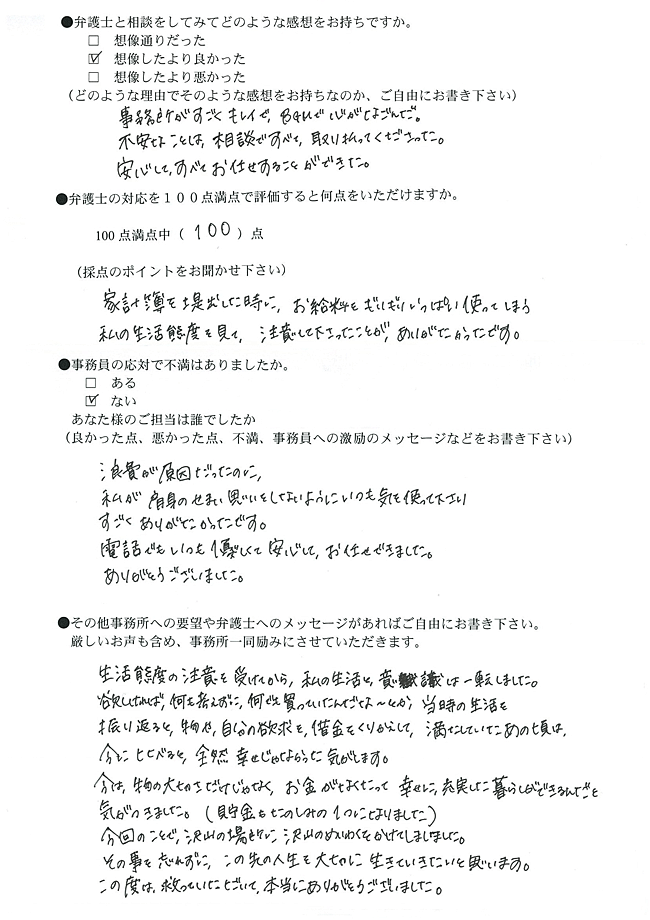 ●弁護士と相談をしてみてどのような感想をお持ちですか。
□ 想像通りだった
☑ 想像したより良かった
□ 想像したより悪かった
（どのような理由でそのような感想をお持ちなのか、ご自由にお書き下さい）
事務所がすごくキレイで、 心がなごんだ。
不安なことは、相談ですべて、取り払ってくださった。
安心して、すべてお任せすることができた。
●弁護士の対応を１００点満点で評価すると何点をいただけますか。
100 点満点中（ 100 ）点
（採点のポイントをお聞かせ下さい）
家計簿を提出した時に、お給料をぎりぎりいっぱい使ってしまう
私の生活態度を見て、注意して下さったことが、ありがたかったです。
●事務員の応対で不満はありましたか。
□ ある
☑ ない
あなた様のご担当は誰でしたか
（良かった点、悪かった点、不満、事務員への激励のメッセージなどをお書き下さい）
浪費が原因だったのに、
私が肩身のせまい思いをしないようにいつも気を使って下さり
すごくありがたかったです。
電話でもいつも優しくて安心して、お任せできました。
ありがとうございました。
●その他事務所への要望や弁護士へのメッセージがあればご自由にお書き下さい。
厳しいお声も含め、事務所一同励みにさせていただきます。
生活態度の注意を受けてから、私の生活と、意識は一転しました。
欲しければ、何も考えずに、何でも買っていたんだな〜とか、当時の生活を
振り返ると、物や、自分の欲求を、借金をくりかえして、満たしていたあの頃は、
今にくらべると、全然幸せじゃなかった気がします。
今は、物の大切さだけじゃなく、お金がなくたって幸せに、充実した暮らしができるんだと
気がつきました。（貯金もたのしみの1つになりました）
今回のことで、沢山の場所に沢山のめいわくをかけてしまいました。
その事を忘れずに、この先の人生を大切に生きていきたいと思います。
この度は、救っていただいて、本当にありがとうございました。